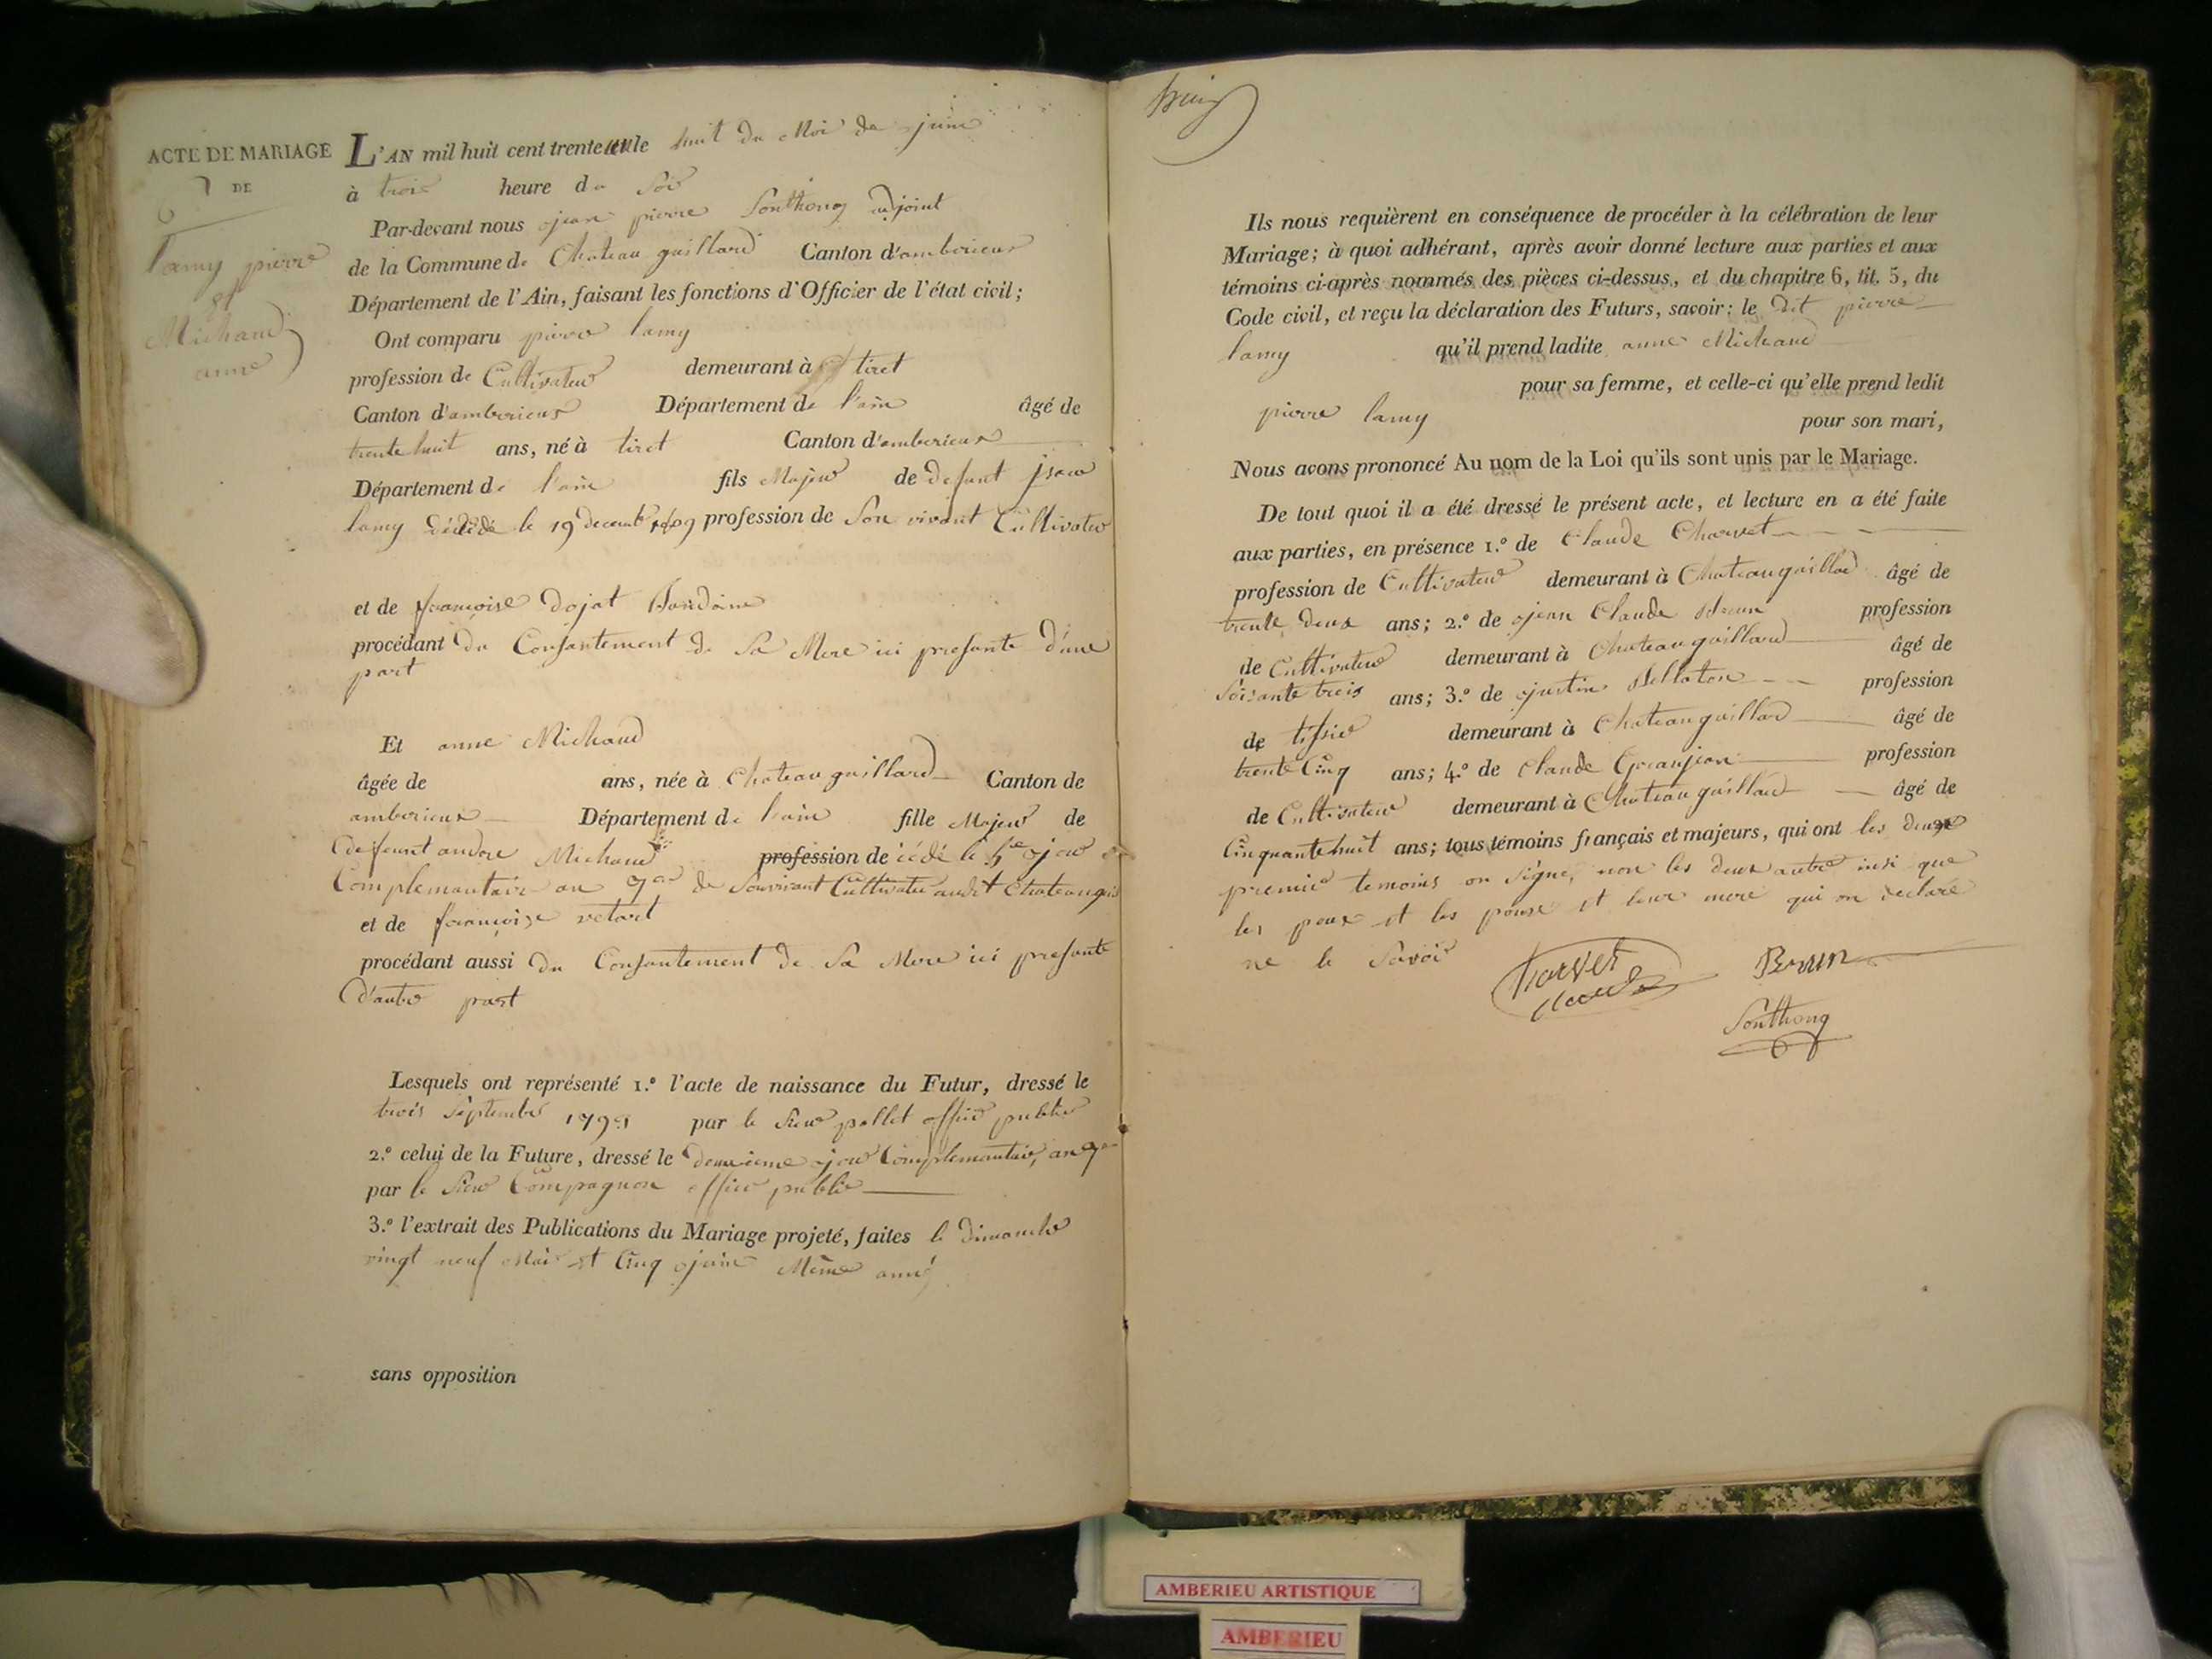 ACTE DE MARIAGE
DE
lamy pierre
et
Michaud
anne
L'AN mil huit cent trente un le huit du Moi de juin
à trois heure du Soir
Par-devant nous jean pierre Sonthonnax adjoint
de la Commune de Chateau gaillard Canton d'amberieux
Département de l'Ain, faisant les fonctions d'Officier de l'état civil;
Ont comparu pierre lamy
profession de Cultivateur demeurant à tiret
Canton d'amberieux Département de l'ain âgé de
trente huit ans, né à tiret Canton d'amberieux
Département de l'ain fils Majeur de defunt
lamy décédé le 19 decembre profession de Son vivant Cultivateur
et de françoise dojat
procédant du Consantement de Sa Mere ici presante d'une
part
Et anne Michaud
âgée de ans, née à Chateau gaillard Canton de
amberieux Département de l'ain fille Majeur de
defeunt andre Michaud profession de cédé le 5e jour
Complemantaire an 9 de Sonvivant Cultivateur audit Chateaugai
et de françoise vetart
procédant aussi du Consantement de Sa Mere ici presante
d'autre part
Lesquels ont représenté 1.º l'acte de naissance du Futur, dressé le
trois Septembre par le Sieur pollet officier public
2.º celui de la Future, dressé le deuxieme jour Complemantaire, an
par le Sieur Compagnon officier public
3.º l'extrait des Publications du Mariage projeté, faites le dimanche
vingt neuf Mai et Cinq juin Même anné
sans opposition
Ils nous requièrent en conséquence de procéder à la célébration de leur
Mariage; à quoi adhérant, après avoir donné lecture aux parties et aux
témoins ci-après nommés des pièces ci-dessus, et du chapitre 6, tit. 5, du
Code civil, et reçu la déclaration des Futurs, savoir: le dit pierre
lamy qu'il prend ladite anne Michaud
pour sa femme, et celle-ci qu'elle prend ledit
pierre lamy pour son mari,
Nous avons prononcé Au nom de la Loi qu'ils sont unis par le Mariage.
De tout quoi il a été dressé le présent acte, et lecture en a été faite
aux parties, en présence 1.º de Claude Charvet
profession de Cultivateur demeurant à Chateaugaillard âgé de
trente deux ans; 2.º de jean Claude Brun profession
de Cultivateur demeurant à Chateaugaillard âgé de
Soisante trois ans; 3.º de justin Bellaton profession
de tissier demeurant à Chateaugaillard âgé de
trente Cinq ans; 4.º de Claude Granjean profession
de Cultivateur demeurant à Chateaugaillard âgé de
Cinquante huit ans; tous témoins français et majeurs, qui ont les deux
premier temoins on Signe, non les deux autre insi que
les poux et les pouse et leur mere qui on declaré
ne le Savoir
Charvet Brun
Claude
Sonthong
AMBERIEU ARTISTIQUE
AMBERIEU